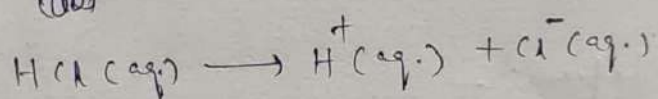 HCl (aq.) ⟶ H⁺(aq.) + Cl⁻(aq.)